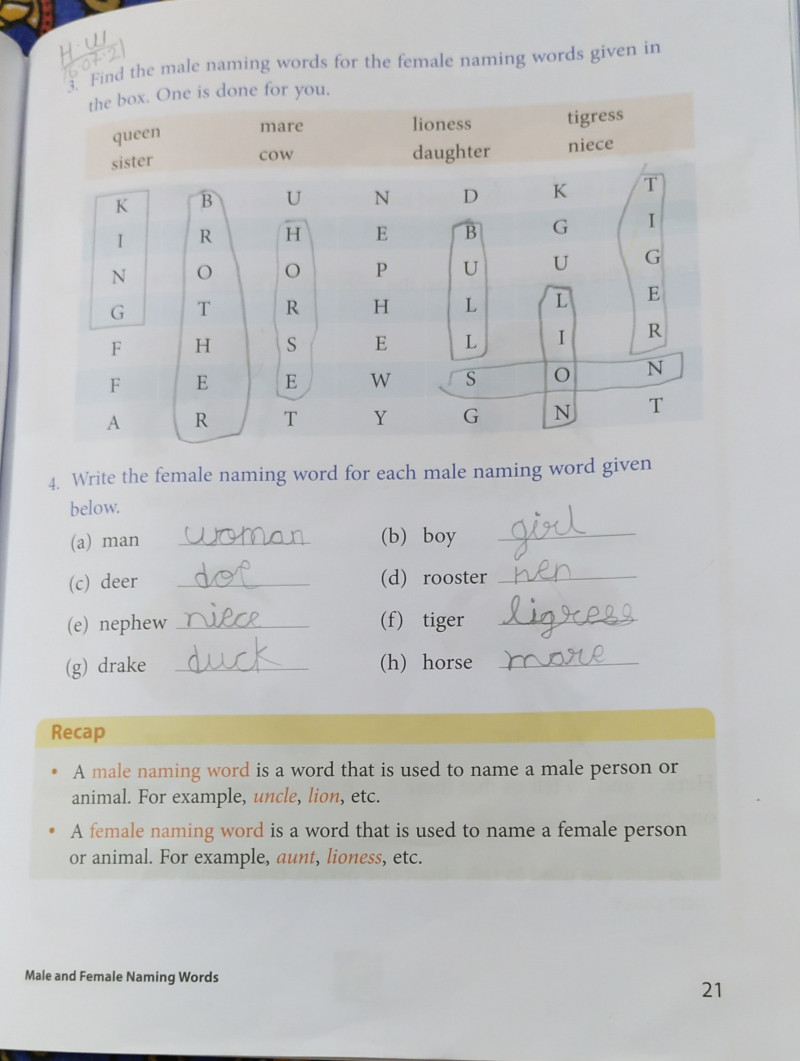 H.W
3. Find the male naming words for the female naming words given in
the box. One is done for you.
queen mare lioness tigress
sister cow daughter niece
K B U N D K T
I R H E B G I
N O O P U U G
G T R H L L E
F H S E L I R
F E E W S O N
A R T Y G N T
4. Write the female naming word for each male naming word given
below.
(a) man woman (b) boy girl
(c) deer doe (d) rooster hen
(e) nephew niece (f) tiger tigress
(g) drake duck (h) horse mare
Recap
• A male naming word is a word that is used to name a male person or
animal. For example, uncle, lion, etc.
• A female naming word is a word that is used to name a female person
or animal. For example, aunt, lioness, etc.
Male and Female Naming Words
21